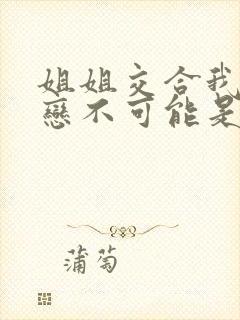 姐姐交合我
戀不可能是
蒲萄